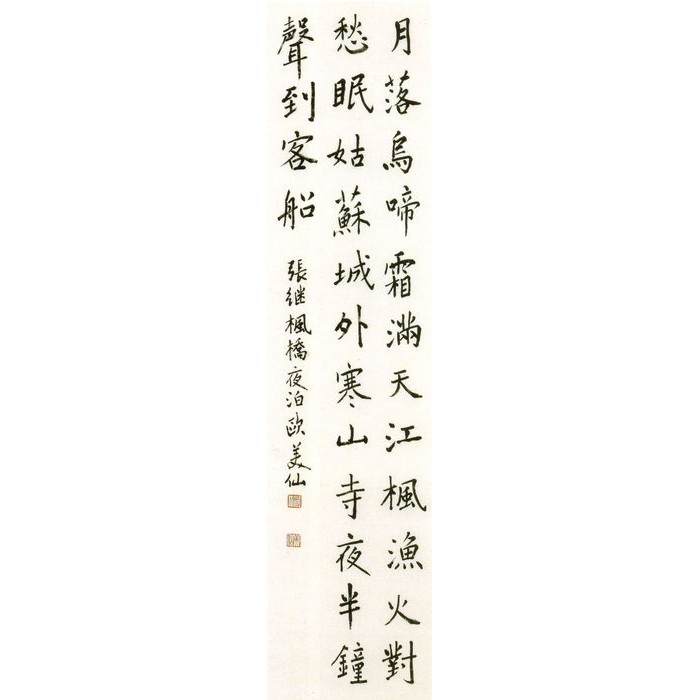 月落烏啼霜滿天江楓漁火對
愁眠姑蘇城外寒山寺夜半鐘
聲到客船
張继楓橋夜泊欧美仙